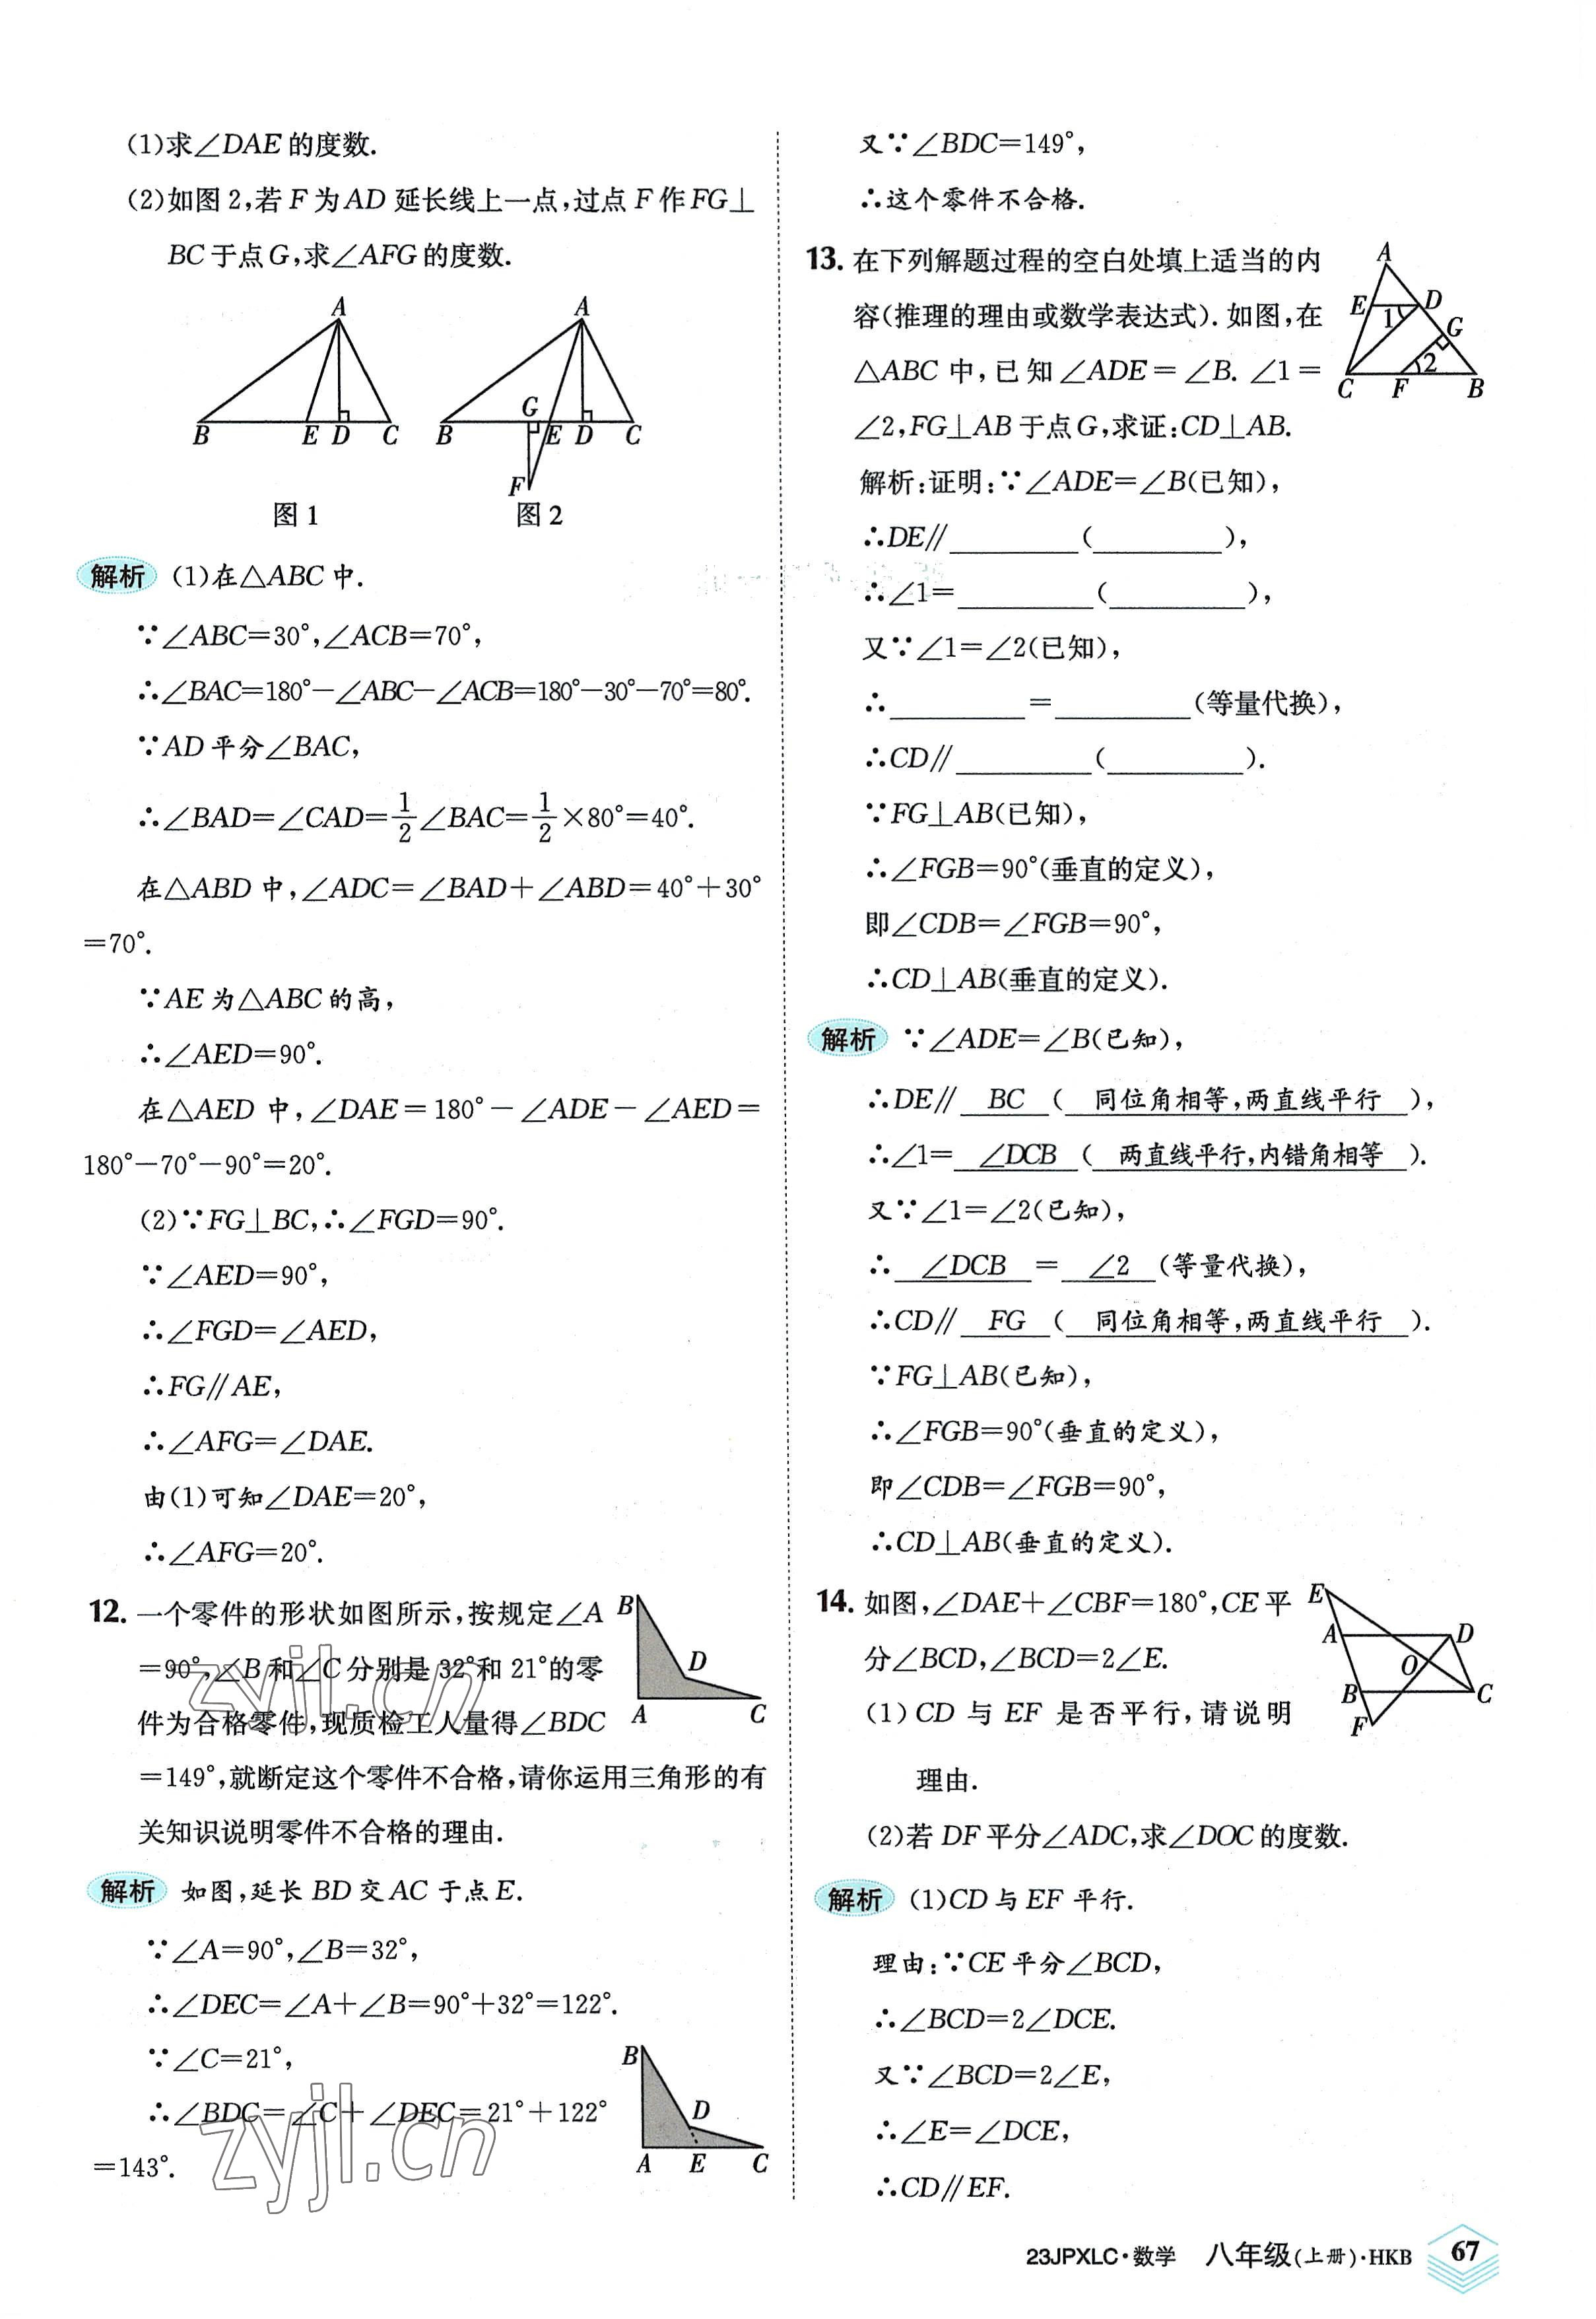 (1)求∠DAE的度数.
(2)如图2,若F为AD延长线上一点,过点F作FG⊥
BC于点G,求∠AFG的度数.
A
B E D C
图1
A
G
B E D C
F
图2
解析 (1)在△ABC中.
∵∠ABC=30°,∠ACB=70°,
∴∠BAC=180°-∠ABC-∠ACB=180°-30°-70°=80°.
∵AD平分∠BAC,
∴∠BAD=∠CAD=1/2∠BAC=1/2×80°=40°.
在△ABD中,∠ADC=∠BAD+∠ABD=40°+30°
=70°.
∵AE为△ABC的高,
∴∠AED=90°.
在△AED中,∠DAE=180°-∠ADE-∠AED=
180°-70°-90°=20°.
(2)∵FG⊥BC,∴∠FGD=90°.
∵∠AED=90°,
∴∠FGD=∠AED,
∴FG∥AE,
∴∠AFG=∠DAE.
由(1)可知∠DAE=20°,
∴∠AFG=20°.
12. 一个零件的形状如图所示,按规定∠A
=90°,∠B和∠C分别是32°和21°的零
件为合格零件,现质检工人量得∠BDC
=149°,就断定这个零件不合格,请你运用三角形的有
关知识说明零件不合格的理由.
B
D
A C
解析 如图,延长BD交AC于点E.
∵∠A=90°,∠B=32°,
∴∠DEC=∠A+∠B=90°+32°=122°.
∵∠C=21°,
∴∠BDC=∠C+∠DEC=21°+122°
=143°.
B
D
A E C
zyjl.cn
zyjl.cn
又∵∠BDC=149°,
∴这个零件不合格.
13. 在下列解题过程的空白处填上适当的内
容(推理的理由或数学表达式).如图,在
△ABC中,已知∠ADE=∠B.∠1=
∠2,FG⊥AB于点G,求证:CD⊥AB.
A
E D
1 G
2
C F B
解析:证明:∵∠ADE=∠B(已知),
∴DE∥________(________),
∴∠1=________(________),
又∵∠1=∠2(已知),
∴________=________(等量代换),
∴CD∥________(________).
∵FG⊥AB(已知),
∴∠FGB=90°(垂直的定义),
即∠CDB=∠FGB=90°,
∴CD⊥AB(垂直的定义).
解析 ∵∠ADE=∠B(已知),
∴DE∥ BC ( 同位角相等,两直线平行 ),
∴∠1= ∠DCB ( 两直线平行,内错角相等 ).
又∵∠1=∠2(已知),
∴ ∠DCB = ∠2 (等量代换),
∴CD∥ FG ( 同位角相等,两直线平行 ).
∵FG⊥AB(已知),
∴∠FGB=90°(垂直的定义),
即∠CDB=∠FGB=90°,
∴CD⊥AB(垂直的定义).
14. 如图,∠DAE+∠CBF=180°,CE平
分∠BCD,∠BCD=2∠E.
(1)CD与EF是否平行,请说明
理由.
(2)若DF平分∠ADC,求∠DOC的度数.
E
A D
O
B C
F
解析 (1)CD与EF平行.
理由:∵CE平分∠BCD,
∴∠BCD=2∠DCE.
又∵∠BCD=2∠E,
∴∠E=∠DCE,
∴CD∥EF.
23JPXLC·数学 八年级(上册)·HKB 67